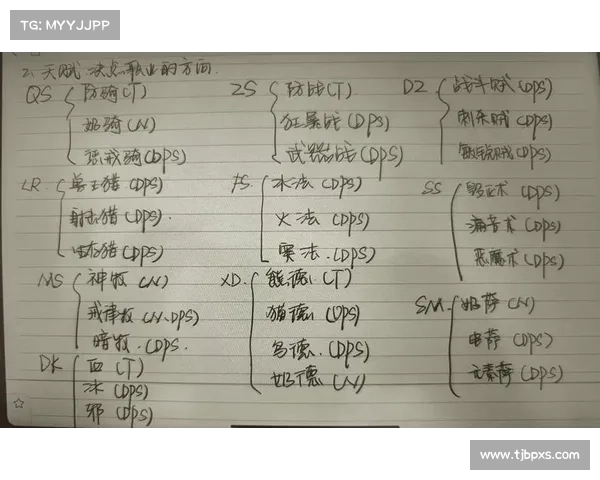 TG: MYYJJPP
2、天赋 决定职业的方向.
QS 防骑(T)
奶骑(N)
惩戒骑(DPS)
ZS 防战(T)
狂暴战(DPS)
武器战(DPS)
DZ 战斗贼(DPS)
刺杀贼(DPS)
敏锐贼(DPS)
LR. 兽王猎(DPS)
射击猎(DPS).
生存猎(DPS)
FS. 冰法(DPS)
火法(DPS)
奥法.(DPS)
SS 毁灭术(DPS)
痛苦术(DPS)
恶魔术(DPS)
MS 神牧(N)
戒律牧(N.DPS)
暗牧.(DPS.
XD. 熊德.(T)
猫德.(DPS)
鸟德.(DPS)
奶德(N)
SM. 奶萨(N)
电萨(DPS)
元素萨(DPS)
DK 血(T)
冰(DPS)
邪(DPS)
www.tjbpxs.com